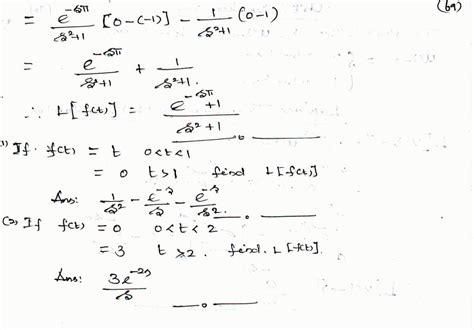 (69)
= e^{-sπ}/(s²+1) [0-(-1)] - 1/(s²+1) (0-1)
= e^{-sπ}/(s²+1) + 1/(s²+1).
∴ L[f(t)] = (e^{-sπ}+1)/(s²+1)
1) If f(t) = t 0<t<1
= 0 t>1 find L[f(t)]
Ans: 1/s² - e^{-s}/s - e^{-s}/s².
(2) If f(t) = 0 0<t<2
= 3 t≥2. find L[f(t)].
Ans: 3e^{-2s}/s